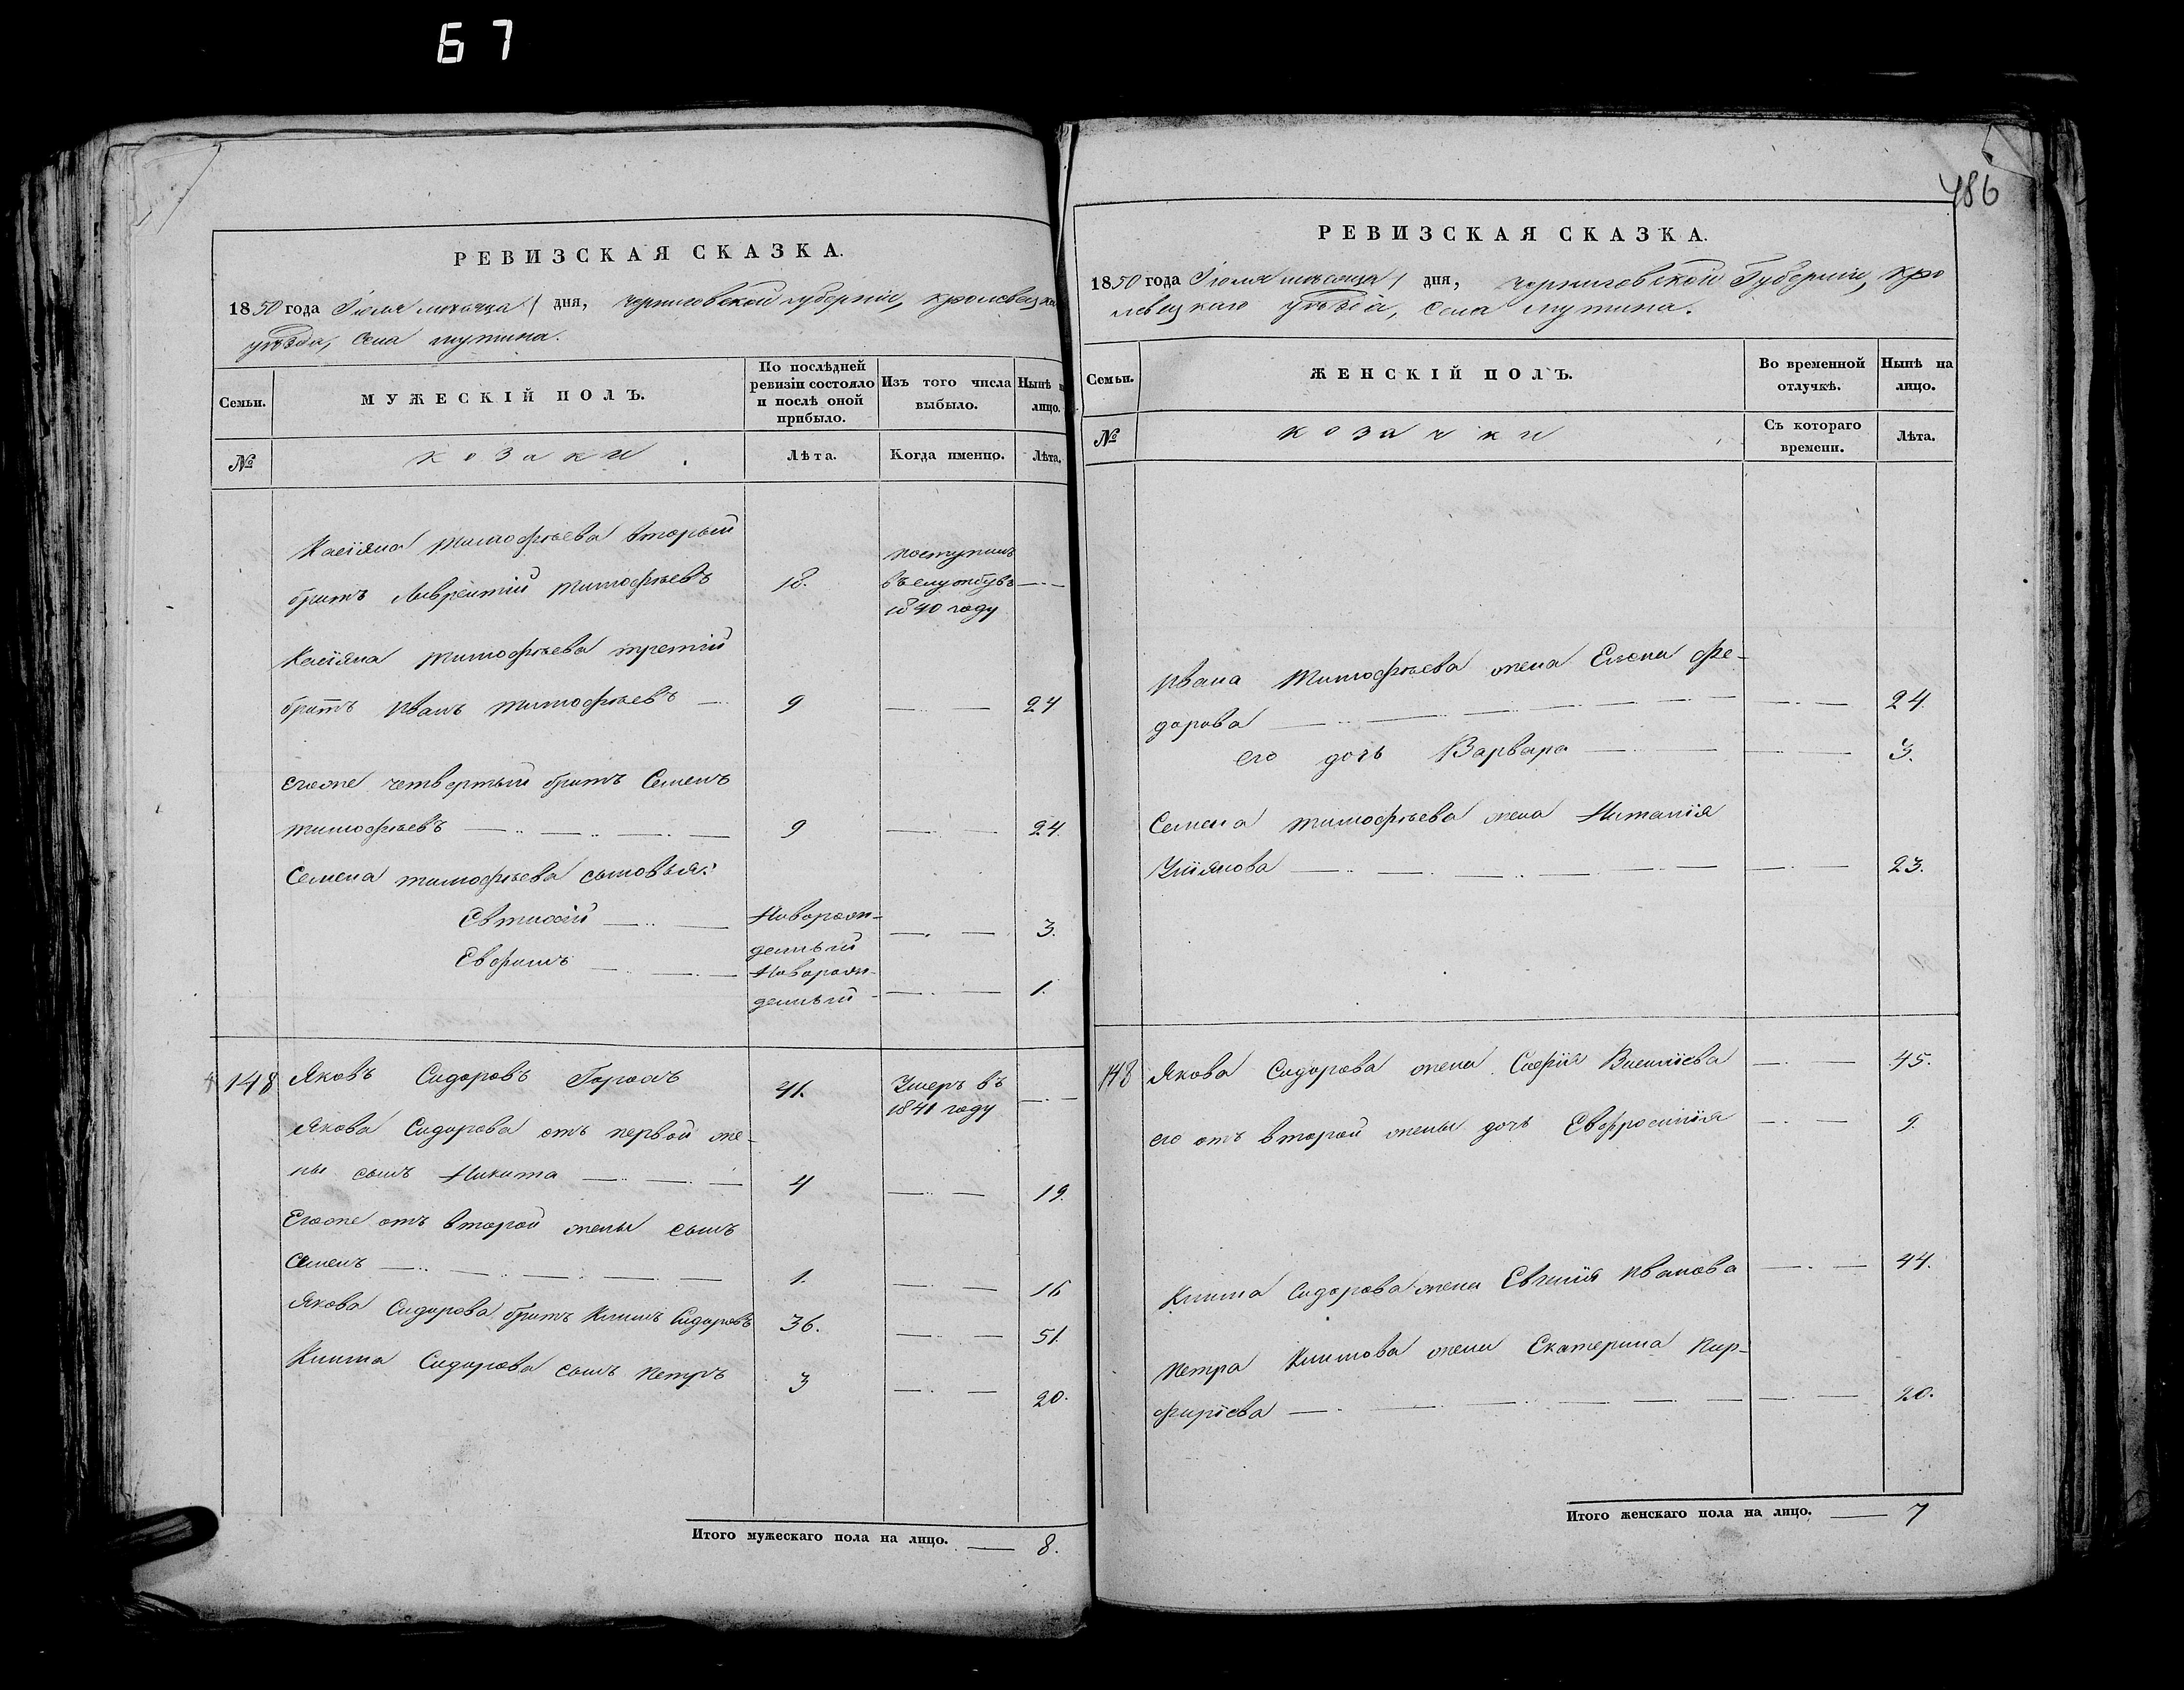 67
РЕВИЗСКАЯ СКАЗКА.
1850 года Іюля мѣсяца 1 дня, Черниговской губерніи, Кролевецка
уѣзда, Села Мутина.
Семьи.
МУЖЕСКІЙ ПОЛЪ.
По послѣдней ревизіи состояло и послѣ оной прибыло.
Изъ того числа выбыло.
Нынѣ на лицо.
№
Козаки
Лѣта.
Когда именно.
Лѣта.
Касіяна Тимофѣева вторый
братъ Лаврентій Тимофѣевъ 18. поступилъ въ службу въ 1840 году
Касіяна Тимофѣева третій
братъ Иванъ Тимофѣевъ 9 24
Егоже четвертый братъ Семенъ
Тимофѣевъ 9 24.
Семена Тимофѣева сыновья:
Евтихій Новорожденный 3.
Евфимъ Новорожденный 1.
148 Яковъ Сидоровъ 41. Умеръ въ 1841 году
Якова Сидорова отъ первой же-
ны сынъ Никита 4 19.
Егоже отъ второй жены сынъ
Семенъ 1. 16
Якова Сидорова братъ Климъ Сидоровъ 36. 51.
Клима Сидорова сынъ Петръ 3 20.
Итого мужескаго пола на лицо. 8.
486
РЕВИЗСКАЯ СКАЗКА.
1850 года Іюля мѣсяца 1 дня, Черниговской Губерніи, Кро
левецкаго уѣзда, Села Мутина.
Семьи.
ЖЕНСКІЙ ПОЛЪ.
Во временной отлучкѣ.
Нынѣ на лицо.
№
Козачки
Съ котораго времени.
Лѣта.
Ивана Тимофѣева жена Елена Фе-
дорова 24.
его дочь Варвара 3.
Семена Тимофѣева жена Наталія
23.
148 Якова Сидорова жена Софія Василіева 45.
его отъ второй жены дочь Евфросинія 9.
Клима Сидорова жена Евгенія Иванова 44.
Петра Климова жена Екатерина Пар-
фиріева 20.
Итого женскаго пола на лицо. 7